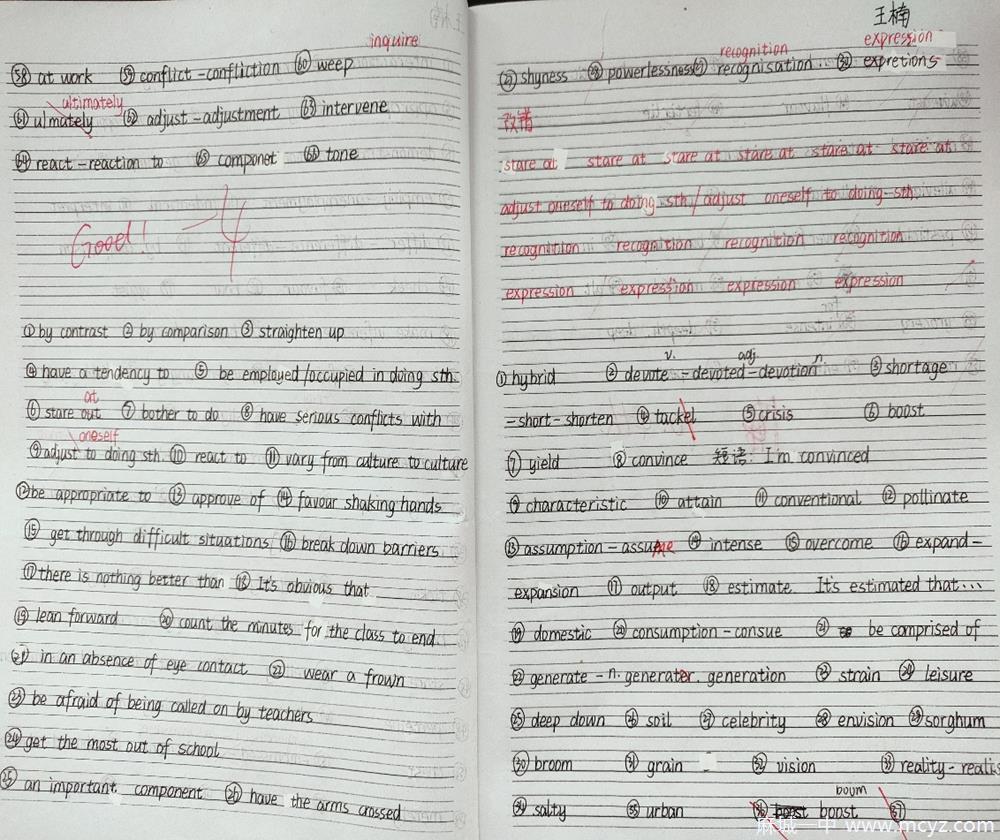 inquire
58 at work 59 conflict - confliction 60 weep
ultimately
61 ulmately 62 adjust - adjustment 63 intervene
64 react - reaction to 65 componet 66 tone
Good! -4
① by contrast ② by comparison ③ straighten up
④ have a tendency to ⑤ be employed/occupied in doing sth.
at
⑥ stare out ⑦ bother to do ⑧ have serious conflicts with
oneself
⑨ adjust to doing sth. ⑩ react to ⑪ vary from culture to culture
⑫ be appropriate to ⑬ approve of ⑭ favour shaking hands
⑮ get through difficult situations ⑯ break down barriers
⑰ there is nothing better than ⑱ It's obvious that
⑲ lean forward ⑳ count the minutes for the class to end.
㉑ in an absence of eye contact ㉒ wear a frown
㉓ be afraid of being called on by teachers
㉔ get the most out of school
㉕ an important component ㉖ have the arms crossed
王楠
recognition expression
㉗ shyness ㉘ powerlessness ㉙ recognisation ㉚ expretions
改错
stare at stare at stare at stare at stare at stare at
adjust oneself to doing sth./adjust oneself to doing sth.
recognition recognition recognition recognition
expression expression expression expression
v. adj. n
① hybrid ② devote - devoted - devotion ③ shortage
- short - shorten ④ tackel ⑤ crisis ⑥ boost
⑦ yield ⑧ convince 短语: I'm convinced
⑨ characteristic ⑩ attain ⑪ conventional ⑫ pollinate
⑬ assumption - assume ⑭ intense ⑮ overcome ⑯ expand -
expansion ⑰ output ⑱ estimate. It's estimated that...
⑲ domestic ⑳ consumption - consue ㉑ be comprised of
㉒ generate - n. generater. generation ㉓ strain ㉔ leisure
㉕ deep down ㉖ soil ㉗ celebrity ㉘ envision ㉙ sorghum
㉚ broom ㉛ grain ㉜ vision ㉝ reality - realis
boum
㉞ salty ㉟ urban ㊱ boost boost ㊲
麻城一中 www.mcyz.com